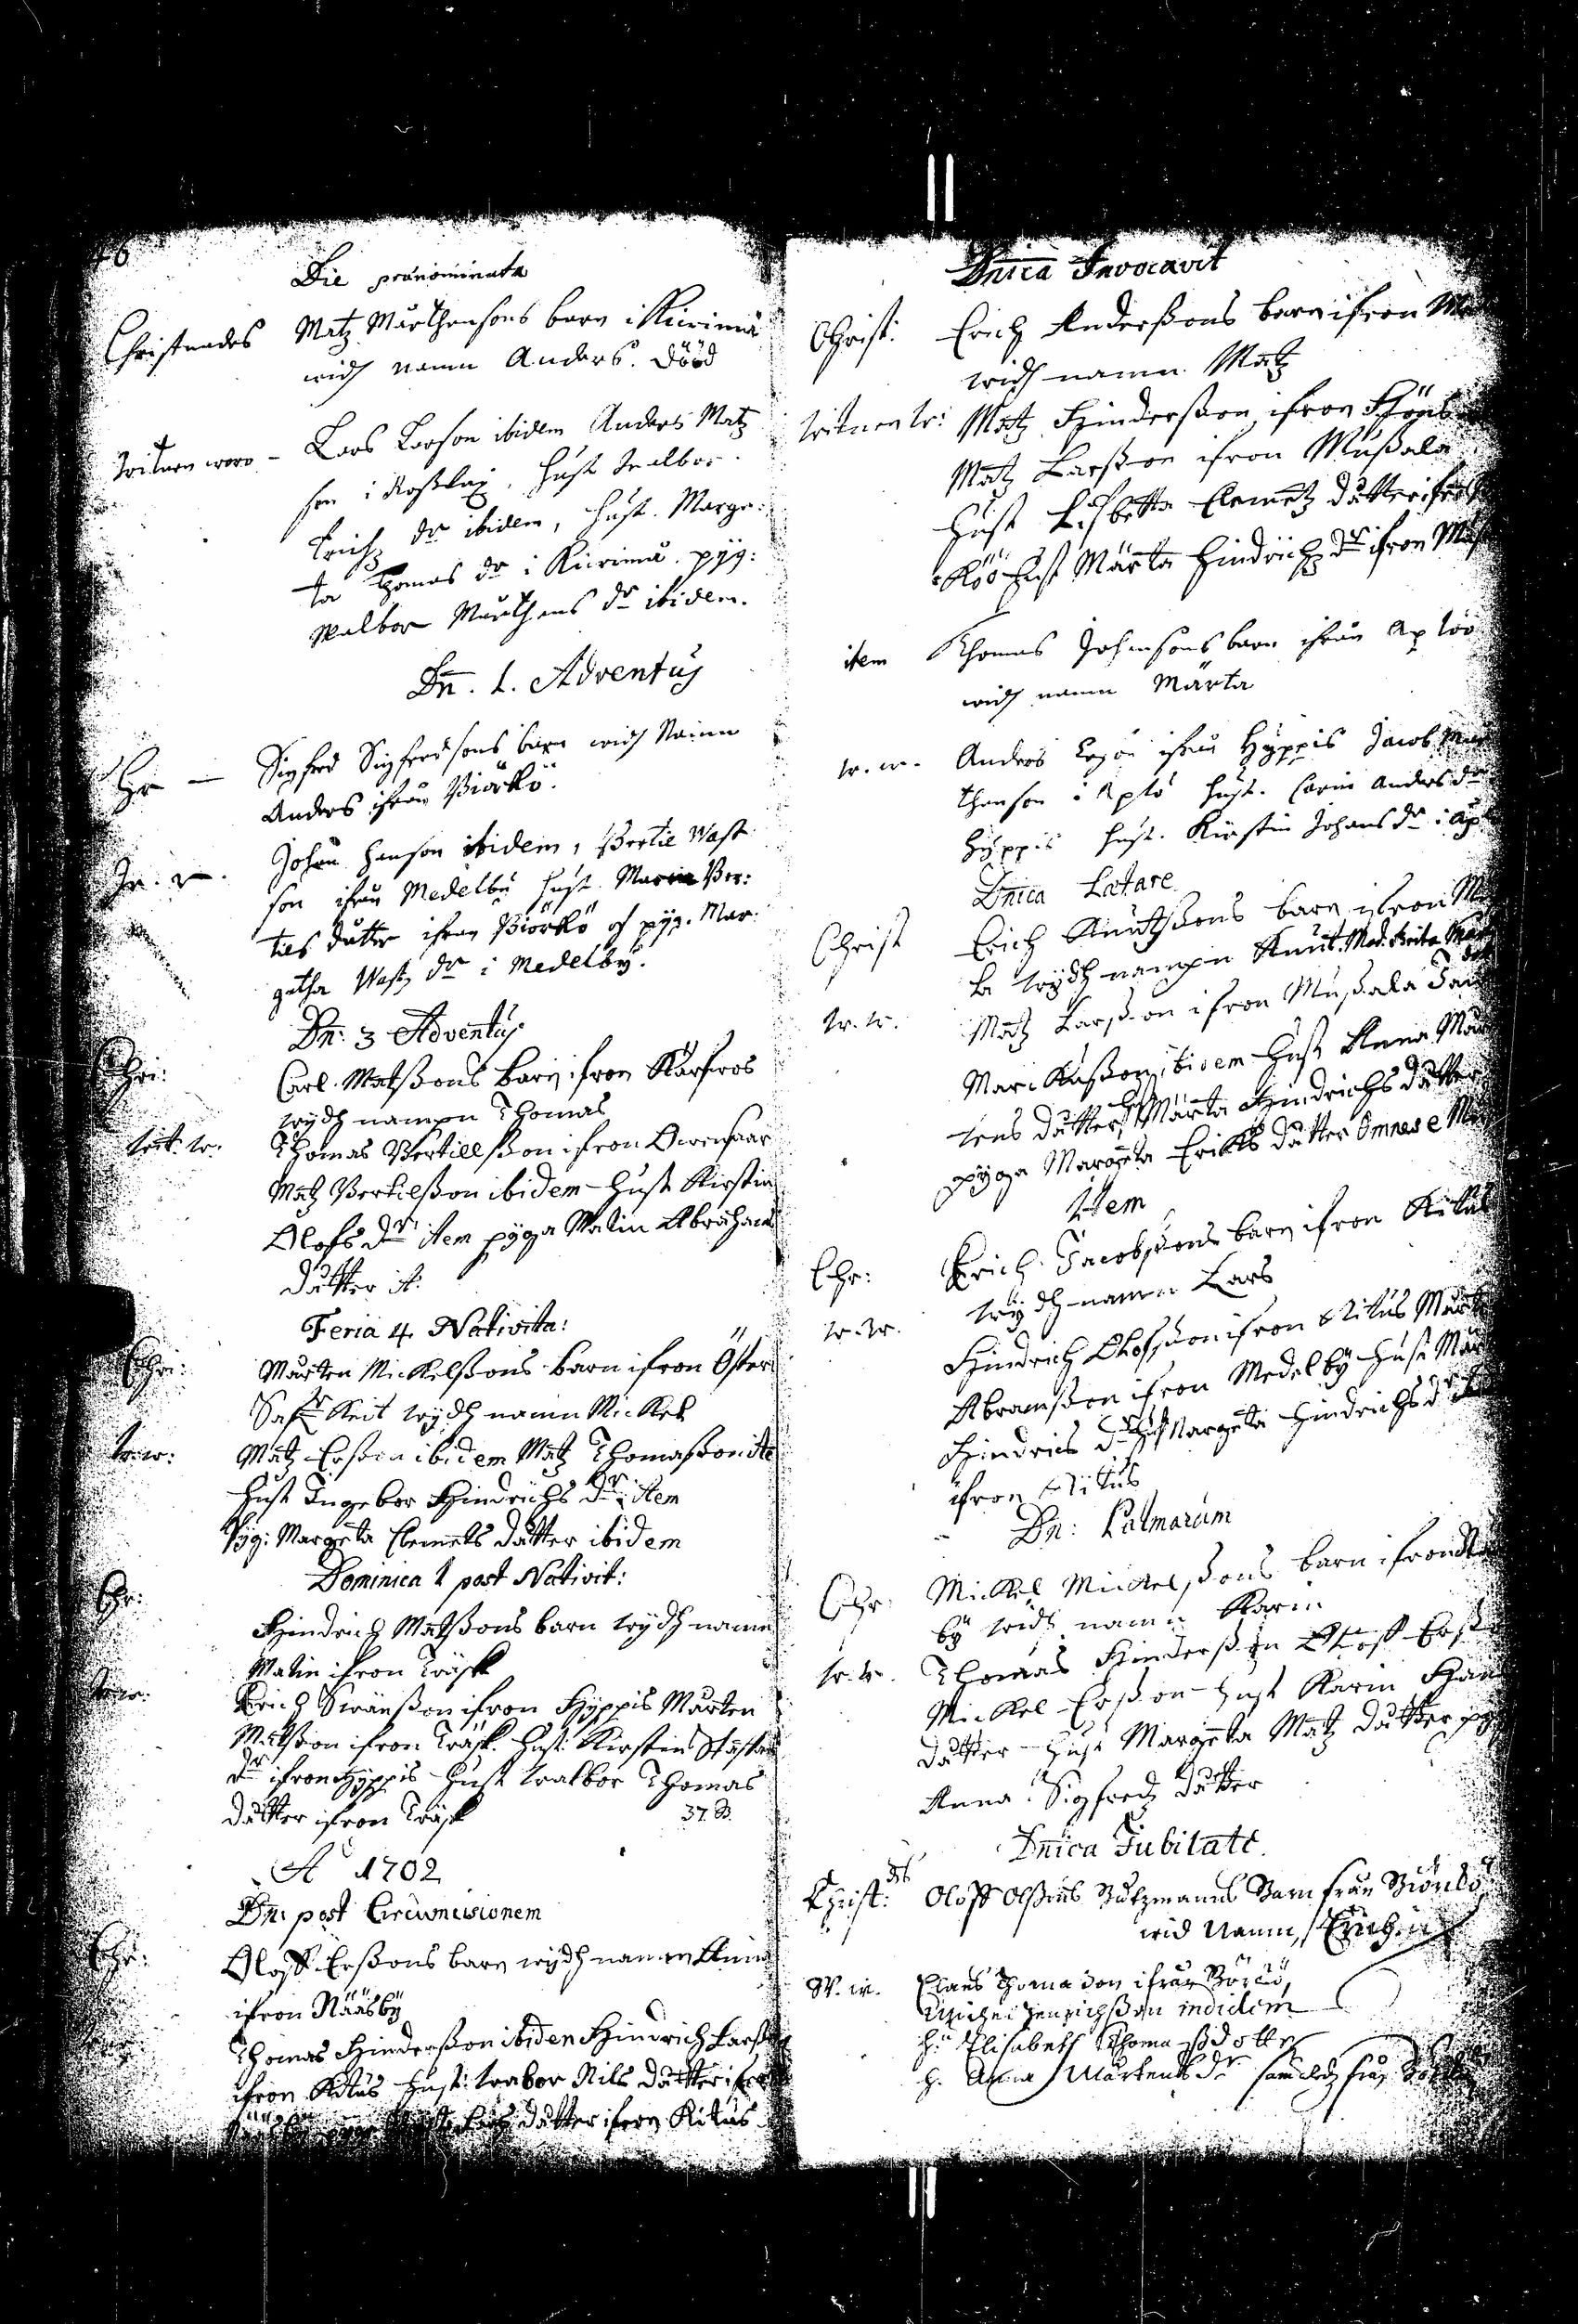 46
Die prænominata
Christnades Matz Mårthensons barn i Kiurimå
widh namn Anders. Dööd
witnen woro - Lars Larson ibidem Anders Matz
son i Rosklax, hust. Walbor
Erichz dr ibidem, hust. Marga:
ta Thomas dr i Kiurimå. pyg:
Walbor Mårthens dr ibidem.
Dn. 1. Adventus
Chr - Sigfred Sigfredsons barn widh Namn
Anders ifrån Biörkö.
Johan Hanson ibidem, Bertil Wast
son ifrån Medelby hust. Maria Ber:
tils dutter ifrån Biörkö och pyg. Mar:
getha Wastz dr i Medelby.
Dn: 3 Adventus
Chri: Carl Matßons barn ifron Kärfros
wydh nampn Thomas
wit. w. Thomas Bertillßon ifron
Matz Bertelßon ibidem - Hust Kirstin
Olofs dr item pyga Malin Abrahams
dutter it:
Feria 4 Nativita:
Chri: Mårten Mickelßons barn ifron Öster
wydh namn Mickel
w.w: Matz Erßon ibidem Matz Thomaßon ite
Hust Ingebor Hindrichs dr item
Pyg: Margeta Clemets dutter ibidem
Dominica 1 post Nativit:
Chr: Hindrich Matßons barn wydh namn
Malin ifron Träsk
w.w. Erich Swänßon ifron Hyppis Mårten
Matßon ifron Träsk. Hust: Kirstin Staffans
dr ifron Hyppis - Hust Walbor Thomas
dutter ifron Träsk 37. B.
A 1702
Dn: post Circumcisionem
Chr: Oloff Erßons barn wydh namn
ifron Nääsby
Thomas Hinderßon ibidem Hindrich Larßon
ifron Kitus Hust: Walbor Nils dutter ifron
dutter ifron Kitus
Dnica Invocavit
Christ: Erich Anderßons barn ifron
widh namn Matz
witnen w: Matz Hinderßon ifron
Matz Larßon ifron Mußala
Hust Lisbetta Clemetz dutter ifron
Hust Märta Hindrichz dr ifron
item Thomas Johansons barn ifrån Aplöö
widh namn Märta
w. w. Anders ifrån Hyppis Jacob Mår
thenson i Aplö hust. Carin Anders dr
Hyppis hust. Kirstin Johans dr i Ap
Dnica Lætare
Christ Erich Knutßons barn ifron
la wydh nampn Knut.
w. w. Matz Larßon ifron Mußala
Marckußon ibidem Hust Anna Mår
tens dutter, Hust Märta Hindrichs dutter
pyga Margeta Eriks dutter Omnes e
Item
Chr: Erich Jacobßons barn ifron Kitus
wydh namn Lars
w. w. Hindrich Olofßon ifron Kitus Mårt
Abramßon ifron Medelby Hust
Hindrics dr Hust Margeta Hindrichs dr
ifron Kitus
Dn: Palmarum
Chr: Mickel Mickelßons barn ifron
by widh namn Karin
w. w. Thomas Hinderßon Oloff Erßon
Mickel Erßon - Hust Karin Hans
dutter - Hust Margeta Matz dutter pyg
Anna Sigfredz dutter
Dnica Jubilate.
Christ: Oloff Olßons Båtzmanns Barn från Biörkö
wid Namn, Erich
W. w. Claes Thomason ifrån
Michel Henrichßon indidem
h: Elisabeth Thomaßdotter
h. Anna Mårtens dr samtel: från